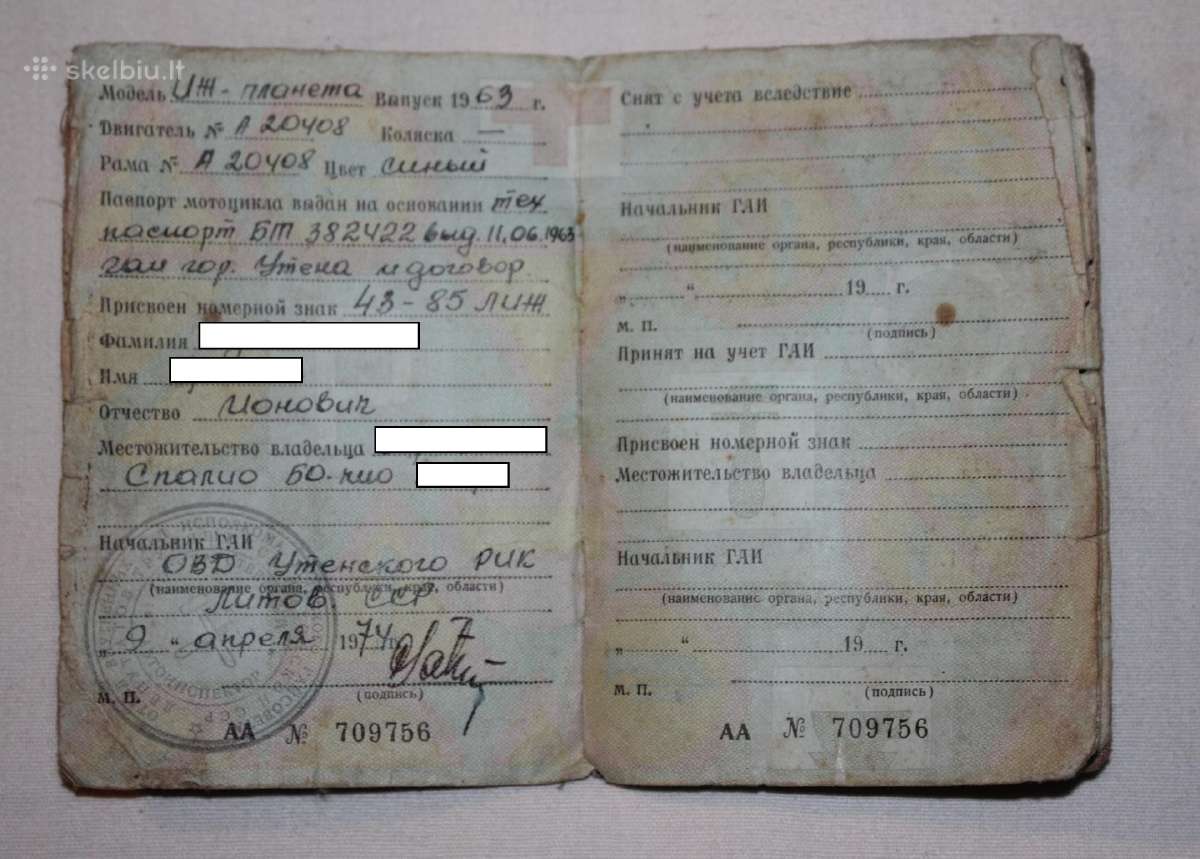 skelbiu.lt
Модель ИЖ-планета Выпуск 1963 г.
Двигатель № А 20408 Коляска —
Рама № А 20408 Цвет синый
Паспорт мотоцикла выдан на основании тех
паспорт БТ 382422 выд. 11.06.1963
гаи гор. Утена и договор
Присвоен номерной знак 43-85 ЛИЖ
Фамилия
Имя
Отчество Ионович
Местожительство владельца
Спалио 50-чио
Начальник ГАИ
ОВД Утенского РИК
(наименование органа, республики, края, области)
Литов. ССР
„ 9 “ апреля 1974 г.
М. П. (подпись)
АА № 709756
Снят с учета вследствие
Начальник ГАИ
(наименование органа, республики, края, области)
„ “ 19 г.
М. П.
(подпись)
Принят на учет ГАИ
(наименование органа, республики, края, области)
Присвоен номерной знак
Местожительство владельца
Начальник ГАИ
(наименование органа, республики, края, области)
„ “ 19 г.
М. П. (подпись)
АА № 709756